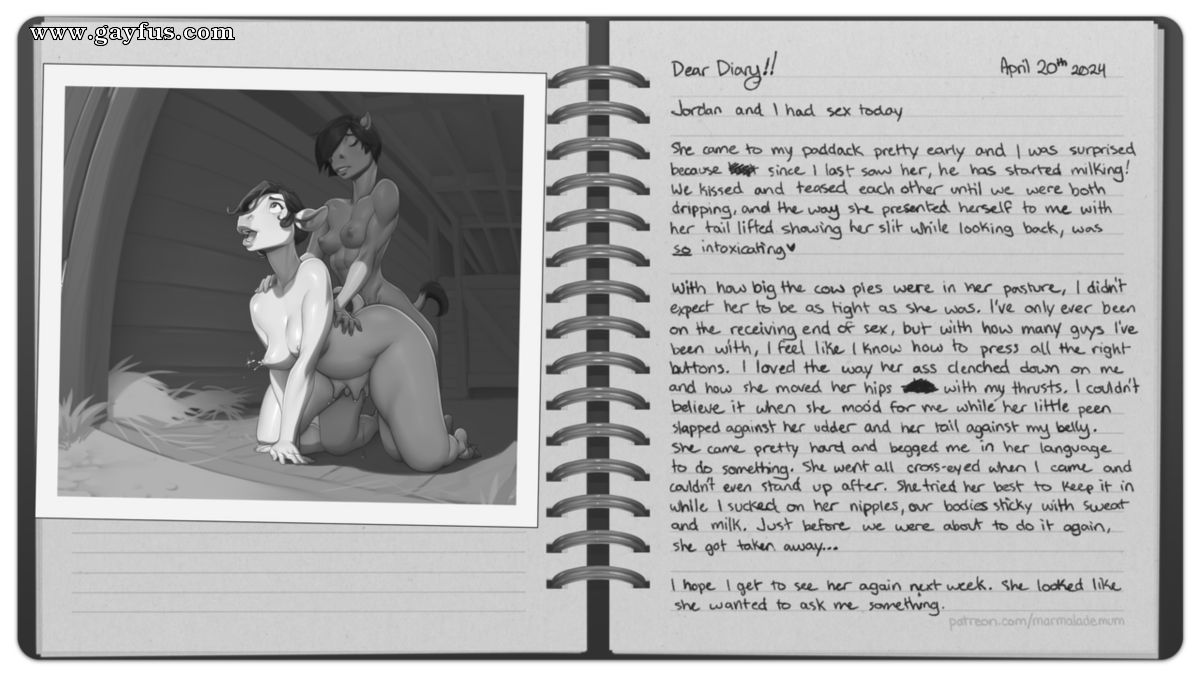 www.gayfus.com
Dear Diary!! April 20th 2024
Jordan and I had sex today
She came to my paddack pretty early and I was surprised
because since I last saw her, he has started milking!
We kissed and teased each other until we were both
dripping, and the way she presented herself to me with
her tail lifted showing her slit while looking back, was
so intoxicating♥
With how big the cow pies were in her pasture, I didn't
expect her to be as tight as she was. I've only ever been
on the receiving end of sex, but with how many guys I've
been with, I feel like I know how to press all the right
buttons. I loved the way her ass clenched down on me
and how she moved her hips with my thrusts. I couldn't
believe it when she moo'd for me while her little peen
slapped against her udder and her tail against my belly.
She came pretty hard and begged me in her language
to do something. She went all cross-eyed when I came and
couldn't even stand up after. She tried her best to keep it in
while I sucked on her nipples, our bodies sticky with sweat
and milk. Just before we were about to do it again,
she got taken away...
I hope I get to see her again next week. She looked like
she wanted to ask me something.
patreon.com/marmalademum